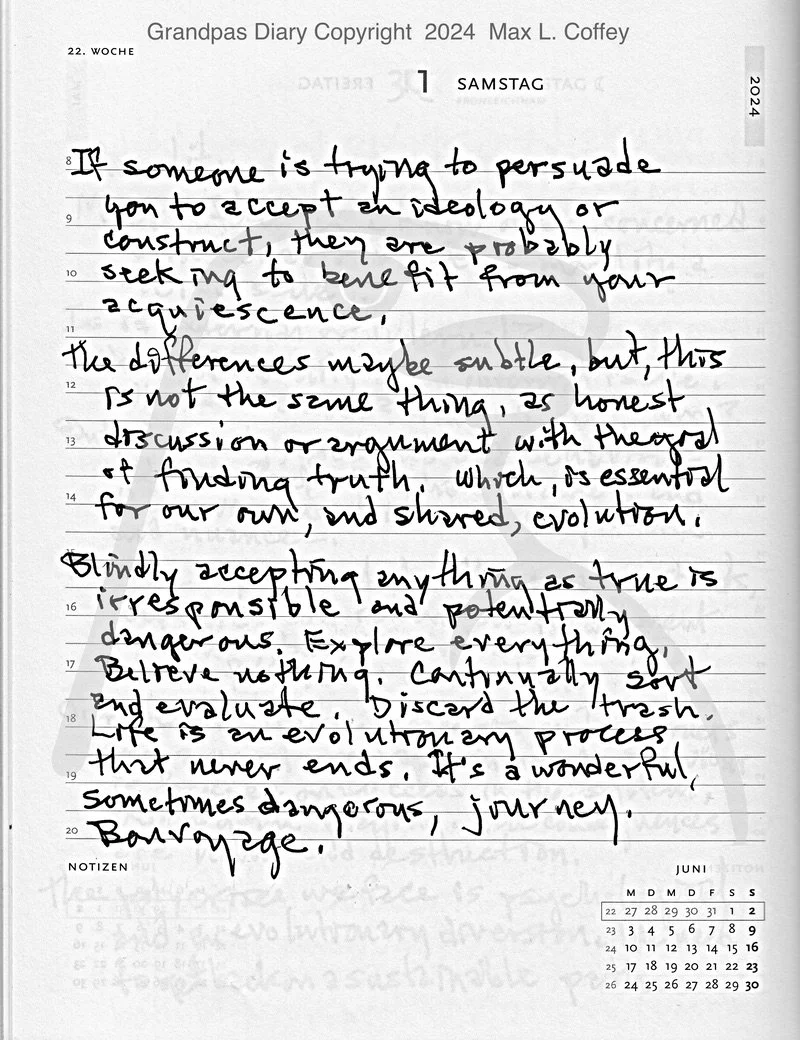 Grandpas Diary Copyright 2024 Max L. Coffey
22. WOCHE
1 SAMSTAG
2024
8 If someone is trying to persuade
you to accept an ideology or
9
construct, they are probably
10 seeking to benefit from your
acquiescence.
11
The differences maybe subtle, but, this
12
is not the same thing, as honest
13 discussion or argument with the goal
of finding truth. Which, is essential
14
for our own, and shared, evolution.
Blindly accepting anything as true is
16 irresponsible and potentially
dangerous. Explore everything.
17 Believe nothing. Continually sort
and evaluate. Discard the trash.
18
Life is an evolutionary process
19 that never ends. It's a wonderful,
sometimes dangerous, journey.
20 Bon voyage.
NOTIZEN
JUNI
M D M D F S S
22 27 28 29 30 31 1 2
23 3 4 5 6 7 8 9
24 10 11 12 13 14 15 16
25 17 18 19 20 21 22 23
26 24 25 26 27 28 29 30